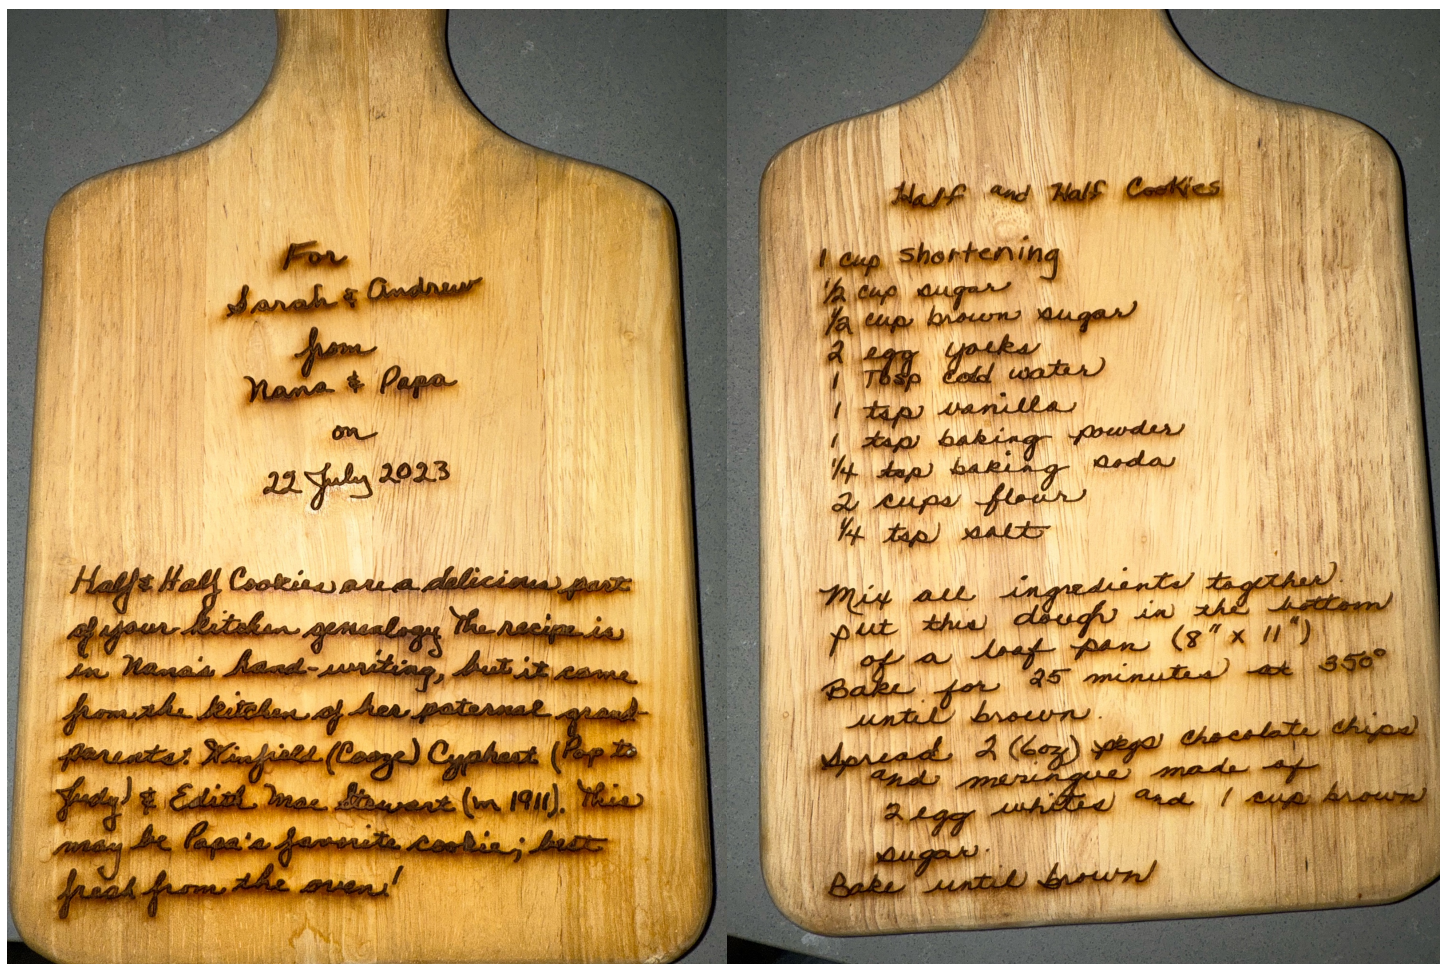 For
Sarah & Andrew
from
Nana & Papa
on
22 July 2023
Half & Half Cookies are a delicious part
of your kitchen genealogy The recipe is
in Nana's hand-writing, but it came
from the kitchen of her paternal grand-
parents: Winfield (Cooze) Cyphert (Pop to
Judy) & Edith Mae Stewart (m 1911). This
may be Papa's favorite cookie; best
fresh from the oven!
Half and Half Cookies
1 cup shortening
1/2 cup sugar
1/2 cup brown sugar
2 egg yolks
1 Tbsp cold water
1 tsp vanilla
1 tsp baking powder
1/4 tsp baking soda
2 cups flour
1/4 tsp salt
Mix all ingredients together.
put this dough in the bottom
of a loaf pan (8" x 11")
Bake for 25 minutes at 350°
until brown.
Spread 2 (6oz) pkgs chocolate chips
and meringue made of
2 egg whites and 1 cup brown
sugar.
Bake until brown